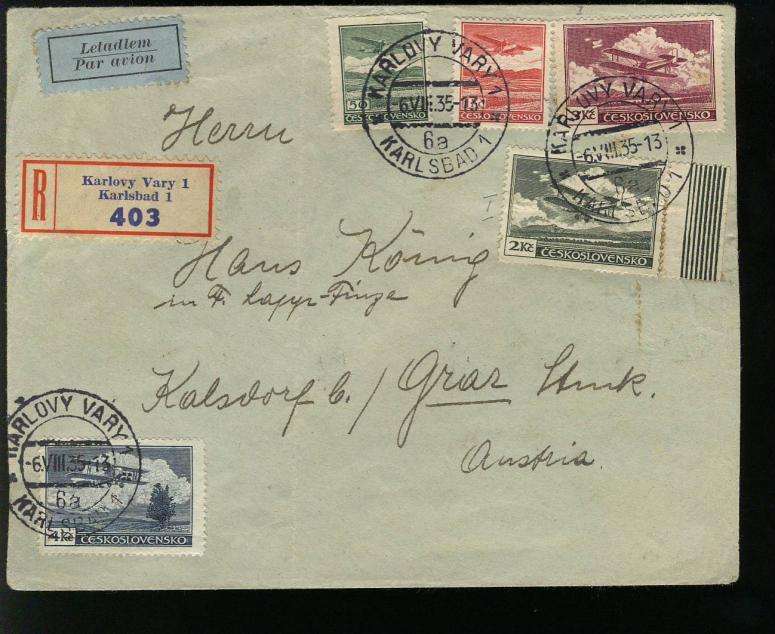 Letadlem
Par avion
50
ČESKOSLOVENSKO
ČESKOSLOVENSKO
Kč ČESKOSLOVENSKO
KARLOVY VARY 1
6.VIII.35-13
6a
KARLSBAD 1
KARLOVY VARY 1
-6.VIII.35-13
6a
KARLSBAD 1
Herrn
R
Karlovy Vary 1
Karlsbad 1
403
2Kč ČESKOSLOVENSKO
I
Hans König
in F.
Kalsdorf b./ Graz
Austria.
KARLOVY VARY 1
-6.VIII.35-13
6a
KARLSBAD 1
4Kč ČESKOSLOVENSKO